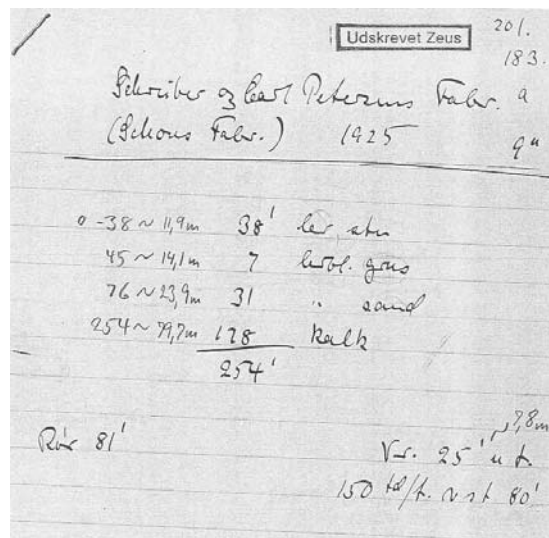 Udskrevet Zeus
201.
183.
Schreiber og Carl Petersens Fabr. a
(Schous Fabr.) 1925 9"
0-38 ~ 11,9m 38' ler, sten
45 ~ 14,1m 7 grus
76 ~ 23,9m 31 " sand
254 ~ 79,7m 178 kalk
254'
~ 7,8m
Rør 81' Vsp. 25' u t.
150 td/t. v s t 80'